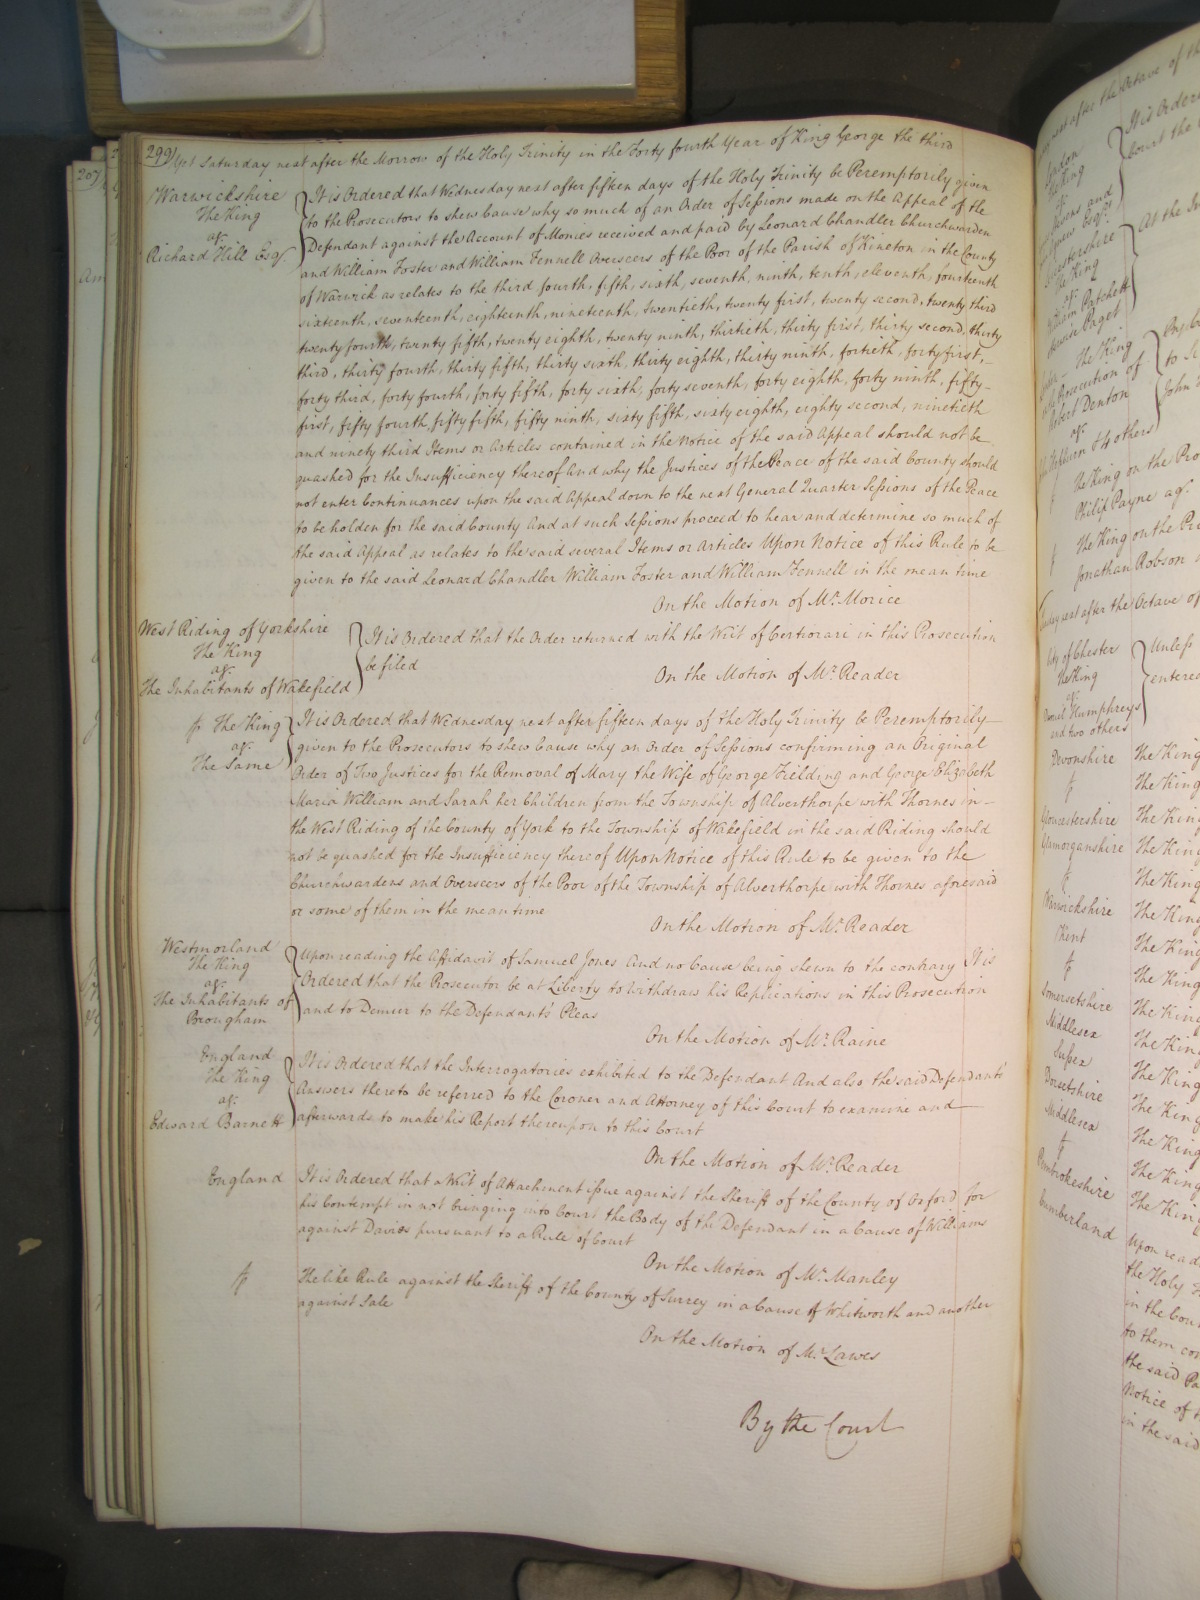 299 Yet Saturday next after the Morrow of the Holy Trinity in the Forty fourth Year of King George the third
Warwickshire
The King
agt.
Richard Hill Esqr.
It is Ordered that Wednesday next after fifteen days of the Holy Trinity be Peremptorily given
to the Prosecutors to shew Cause why so much of an Order of Sessions made on the Appeal of the
Defendant against the Account of Monies received and paid by Leonard Chandler Churchwarden
and William Foster and William Fennell Overseers of the Poor of the Parish of Kineton in the County
of Warwick as relates to the third fourth, fifth, sixth, seventh, ninth, tenth, eleventh, fourteenth
sixteenth, seventeenth, eighteenth, nineteenth, twentieth, twenty first, twenty second, twenty third
twenty fourth, twenty fifth, twenty eighth, twenty ninth, thirtieth, thirty first, thirty second, thirty
third, thirty fourth, thirty fifth, thirty sixth, thirty eighth, thirty ninth, fortieth, forty first,
forty third, forty fourth, forty fifth, forty sixth, forty seventh, forty eighth, forty ninth, fifty
first, fifty fourth, fifty fifth, fifty ninth, sixty fifth, sixty eighth, eighty second, ninetieth
and ninety third Items or Articles contained in the Notice of the said Appeal should not be
quashed for the Insufficiency thereof And why the Justices of the Peace of the said County should
not enter Continuances upon the said Appeal down to the next General Quarter Sessions of the Peace
to be holden for the said County And at such Sessions proceed to hear and determine so much of
the said Appeal as relates to the said several Items or Articles Upon Notice of this Rule to be
given to the said Leonard Chandler William Foster and William Fennell in the mean time
On the Motion of Mr. Morice
West Riding of Yorkshire
The King
agt.
The Inhabitants of Wakefield
It is Ordered that the Order returned with the Writ of Certiorari in this Prosecution
be filed
On the Motion of Mr. Reader
The King
agt.
The Same
It is Ordered that Wednesday next after fifteen days of the Holy Trinity be Peremptorily
given to the Prosecutors to shew Cause why an Order of Sessions confirming an Original
Order of Two Justices for the Removal of Mary the Wife of George Fielding and George Elizabeth
Maria William and Sarah her Children from the Township of Alverthorpe with Thornes in
the West Riding of the County of York to the Township of Wakefield in the said Riding should
not be quashed for the Insufficiency thereof Upon Notice of this Rule to be given to the
Churchwardens and Overseers of the Poor of the Township of Alverthorpe with Thornes aforesaid
or some of them in the mean time
On the Motion of Mr. Reader
Westmorland
The King
agt.
The Inhabitants of
Brougham
Upon reading the Affidavit of Samuel Jones And no Cause being shewn to the contrary It is
Ordered that the Prosecutor be at Liberty to Withdraw his Replications in this Prosecution
and to Demur to the Defendants' Pleas
On the Motion of Mr. Raine
England
The King
agt.
Edward Barnett
It is Ordered that the Interrogatories exhibited to the Defendant And also the said Defendants'
Answers thereto be referred to the Coroner and Attorney of this Court to examine and
afterwards to make his Report thereupon to this Court
On the Motion of Mr. Reader
England
It is Ordered that a Writ of Attachment issue against the Sheriff of the County of Oxford for
his Contempt in not bringing into Court the Body of the Defendant in a Cause of Williams
against Davies pursuant to a Rule of Court
On the Motion of Mr. Manley
The like Rule against the Sheriff of the County of Surrey in a Cause of Whitworth and another
against Sale
On the Motion of Mr. Lawes
By the Court
London
The King
agt.
The King
agt.
William Patchett
Paget
The King
Prosecution of
Robert Denton
agt.
Hepburn & 4 others
The King on the Pro
Philip Payne agt.
The King on the Pro
Jonathan Robson
next after the Octave of
City of Chester
The King
agt.
Humphreys
and two others
Unless
entered
Devonshire The King
The King
Gloucestershire The King
Glamorganshire The King
The King
Warwickshire The King
Kent The King
The King
Somersetshire The King
Middlesex The King
Sussex The King
Dorsetshire The King
Middlesex The King
The King
Pembrokeshire The King
Cumberland
Upon read
the Holy
in the Cou
to them con
the said Pa
Notice of
in the said